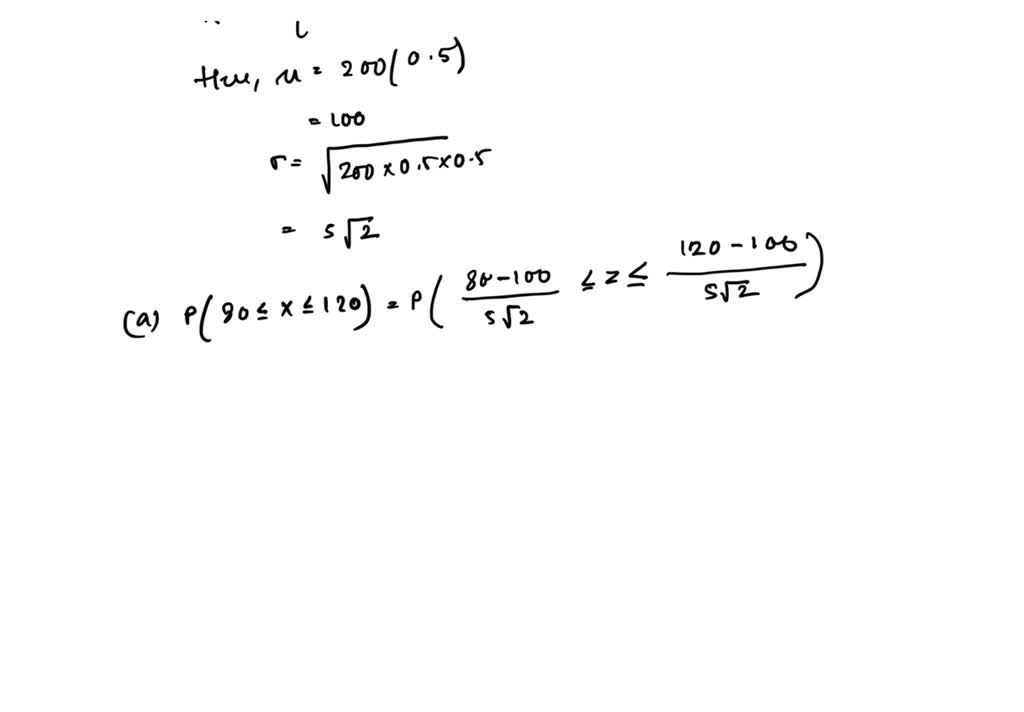 Here, μ = 200(0.5)
= 100
σ = √200 × 0.5 × 0.5
= 5√2
(a) P(80 ≤ x ≤ 120) = P(80-100/5√2 ≤ z ≤ 120-100/5√2)